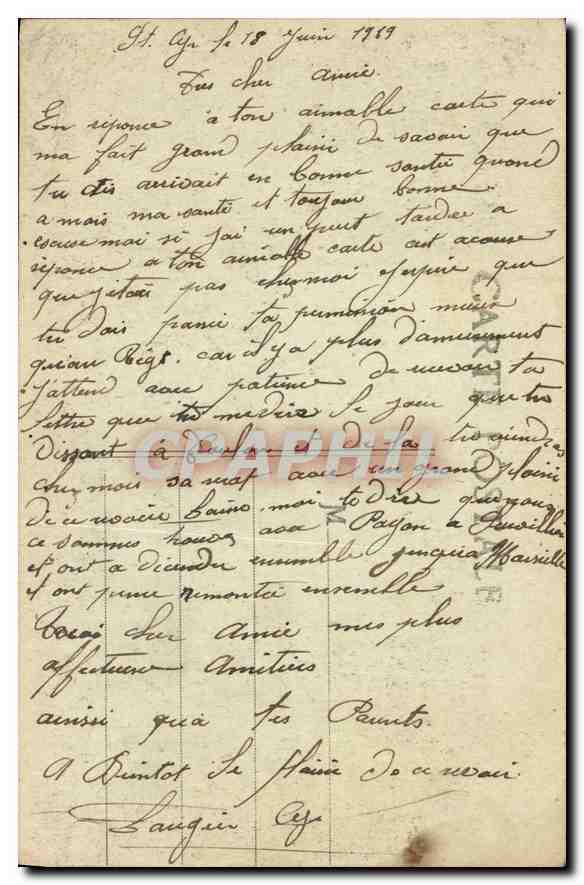 St. Cyr le 18 Juin 1919
Tres cher Amie.
En reponce a ton aimable carte qui
ma fait grand plaisir de savoir que
tu etes arrivait en bonne santé quand
a mois ma santé et toujour bonne
escuse moi si jai un peut tardée a
reponce a ton aimable carte cet acause
que jetai pas chez moi jespire que
tu dois passé ta permision mieux
qu'au Régt. car il y a plus d'amusement
J'attend avec patience de recevoir ta
lettre que tu me dira le jour que tu
Dissent à et de la tu viendras
chez mois sa serat avec un grand plaisir
de ce revoir moi te dire que nous
ce sommes trouves avec Payan a
et ont a decendu ensemble jusqua Marseille
et ont remontée ensemble
Recoi cher Amie mes plus
affectueuse Amitiers
ainsi qua tes Parents.
A Bientot le plaisir de ce revoir.
Laugier Cyr
CARTE POSTALE
M
CPAPHIL